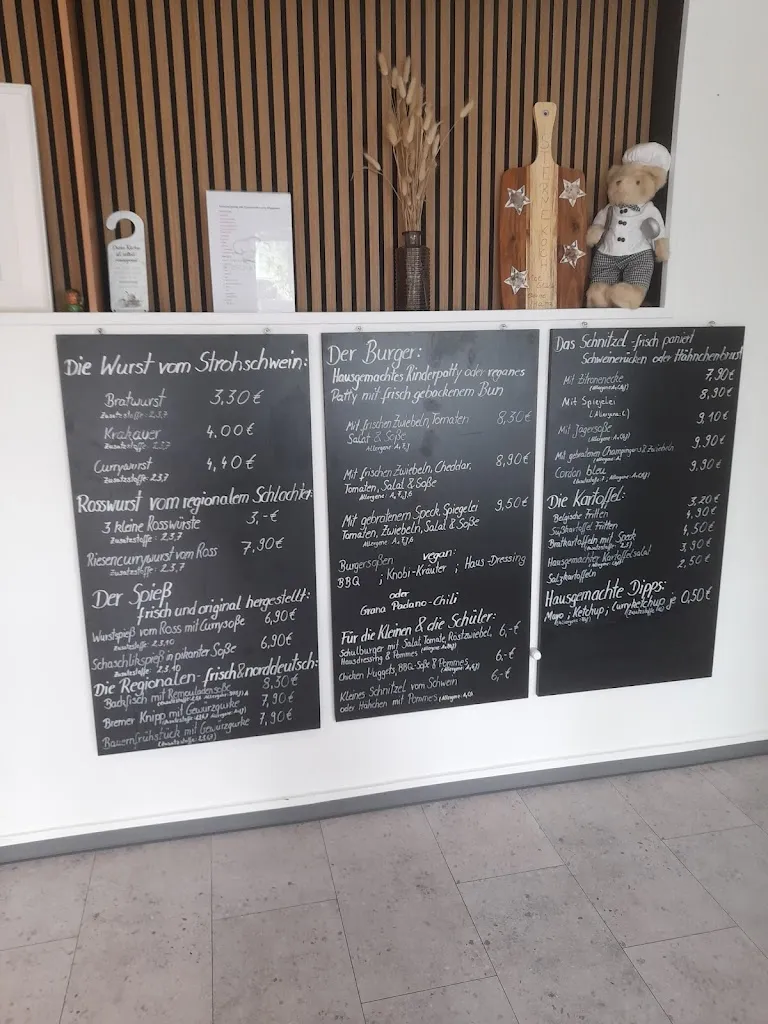 Die Wurst vom Strohschwein:
Bratwurst 3,30 €
Zusatzstoffe: 2,3,7
Krakauer 4,00 €
Zusatzstoffe: 2,3,7
Currywurst 4,40 €
Zusatzstoffe: 2,3,7
Rosswurst vom regionalem Schlachter:
3 kleine Rosswürste 3,-€
Zusatzstoffe: 2,3,7
Riesencurrywurst vom Ross 7,90 €
Zusatzstoffe: 2,3,7
Der Spieß
frisch und original hergestellt:
Wurstspieß vom Ross mit Currysoße 6,90€
Zusatzstoffe: 2,3,10
Schaschlikspieß in pikanter Soße 6,90€
Zusatzstoffe: 2,3,10
Die Regionalen-frisch&norddeutsch:
Backfisch mit Remouladensoße 8,30€
Bremer Knipp mit Gewürzgurke 7,90€
Bauernfrühstück mit Gewürzgurke 7,90€
(Zusatzstoffe: 2,3,7)
Der Burger:
Hausgemachtes Rinderpatty oder veganes
Patty mit frisch gebackenem Bun
Mit frischen Zwiebeln, Tomaten 8,30€
Salat & Soße
Mit frischen Zwiebeln, Cheddar, 8,90€
Tomaten, Salat & Soße
Mit gebratenem Speck, Spiegelei 9,50€
Tomaten, Zwiebeln, Salat & Soße
Burgersoßen vegan:
BBQ ; Knobi-Kräuter ; Haus-Dressing
oder
Grana Padano-Chili
Für die Kleinen & die Schüler:
Schulburger mit Salat, Tomate, Röstzwiebel, 6,-€
Hausdressing & Pommes
Chicken Nuggets, BBQ-Soße & Pommes 6,-€
Kleines Schnitzel vom Schwein 6,-€
oder Hähchen mit Pommes
Das Schnitzel -frisch paniert
Schweinerücken oder Hähnchenbrust
Mit Zitronenecke 7,90€
Mit Spiegelei 8,90€
Mit Jägersoße 9,10€
Mit gebratenen Champignons & Zwiebeln 9,90€
Cordon bleu 9,90€
Die Kartoffel:
Belgische Fritten 3,20€
Süßkartoffel Fritten 4,90€
Bratkartoffeln mit Speck 4,50€
Hausgemachter Kartoffelsalat 3,90€
Salzkartoffeln 2,50€
Hausgemachte Dipps:
Mayo ; Ketchup ; Curryketchup je 0,50€